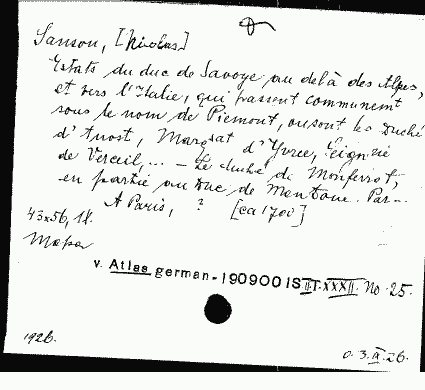 Sanson, [Nicolas]
Estats du duc de Savoye au delà des Alpes,
et vers l'Italie, qui passent communem̄t
sous le nom de Piemont, ou sont les Duché
d'Aoust, Marqsat d'Yvree, Seignrie
de Verceil... - Le duché de Monferrat,
en partie au Duc de Mantoue. Par...
A Paris, ? [ca 1700]
43x56, 1 k.
Mapa
v. Atlas german. - 190900 IS II T. XXXII. No 25.
1926.
0. 3. IX. 26.